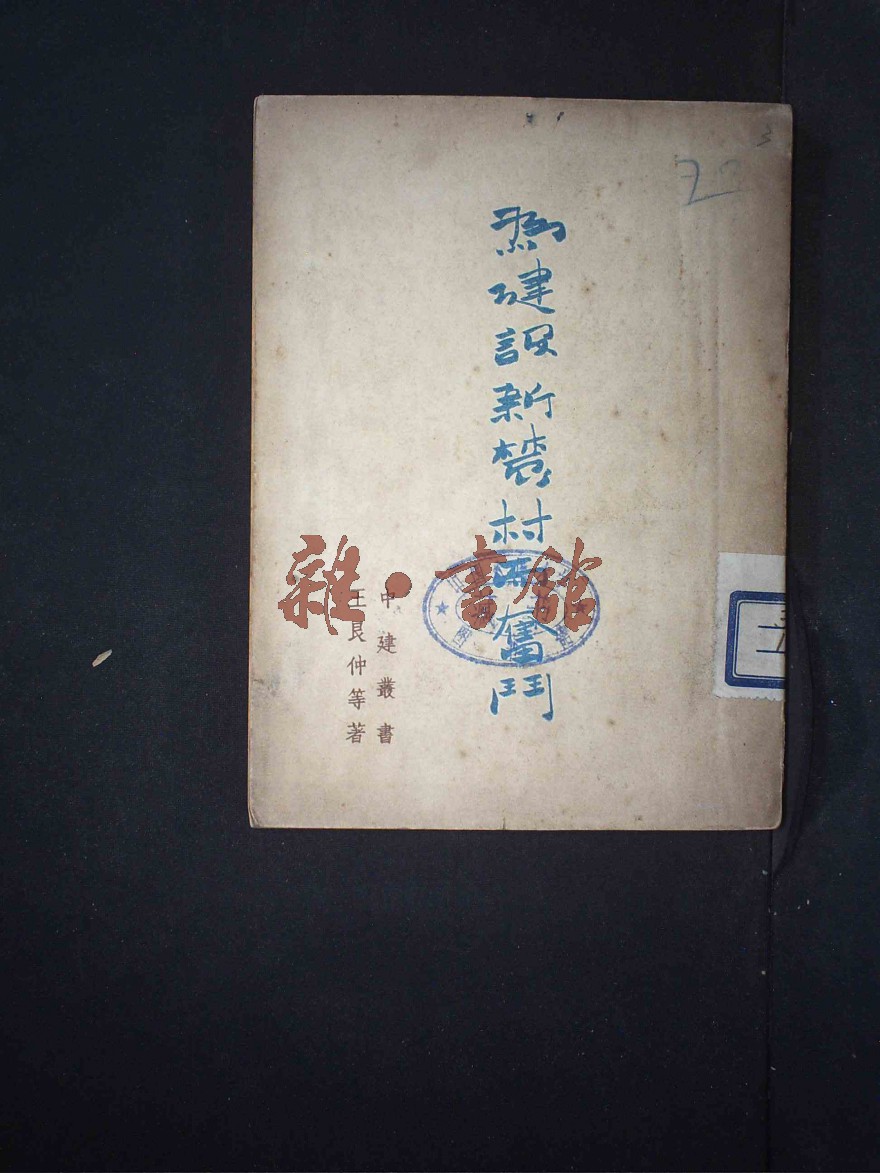 為建設新農村而奮鬥
中建叢書
王艮仲等著
雜·書館